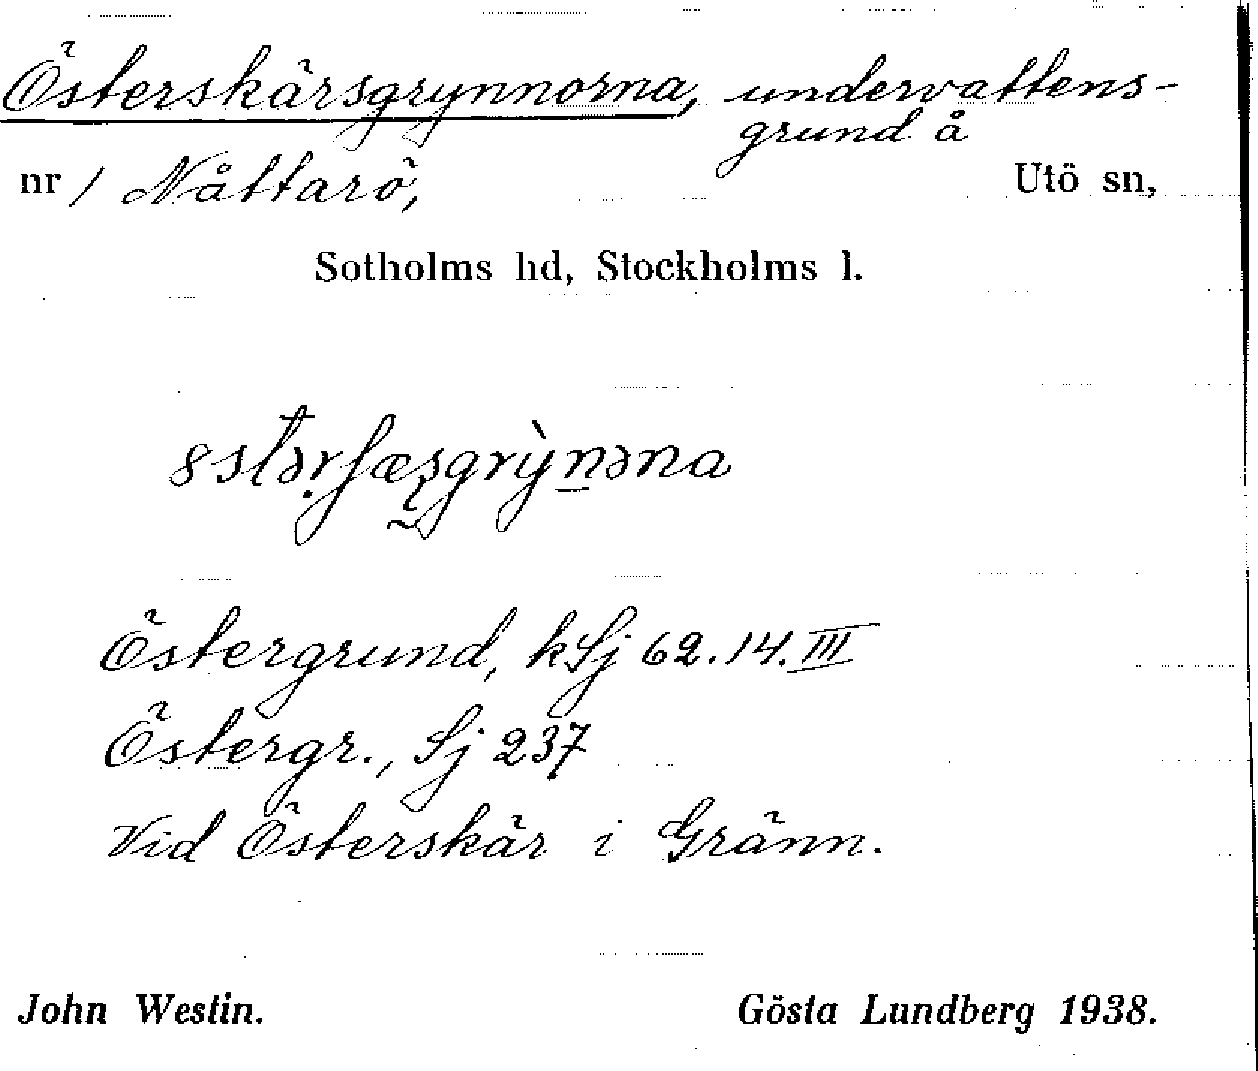 Österskärsgrynnorna, undervattens-
grund å
nr 1 Nåttarö, Utö sn,
Sotholms hd, Stockholms l.
Östergrund, kSj 62.14.III
Östergr., Sj 237
Vid Österskär i Gränn.
John Westin. Gösta Lundberg 1938.